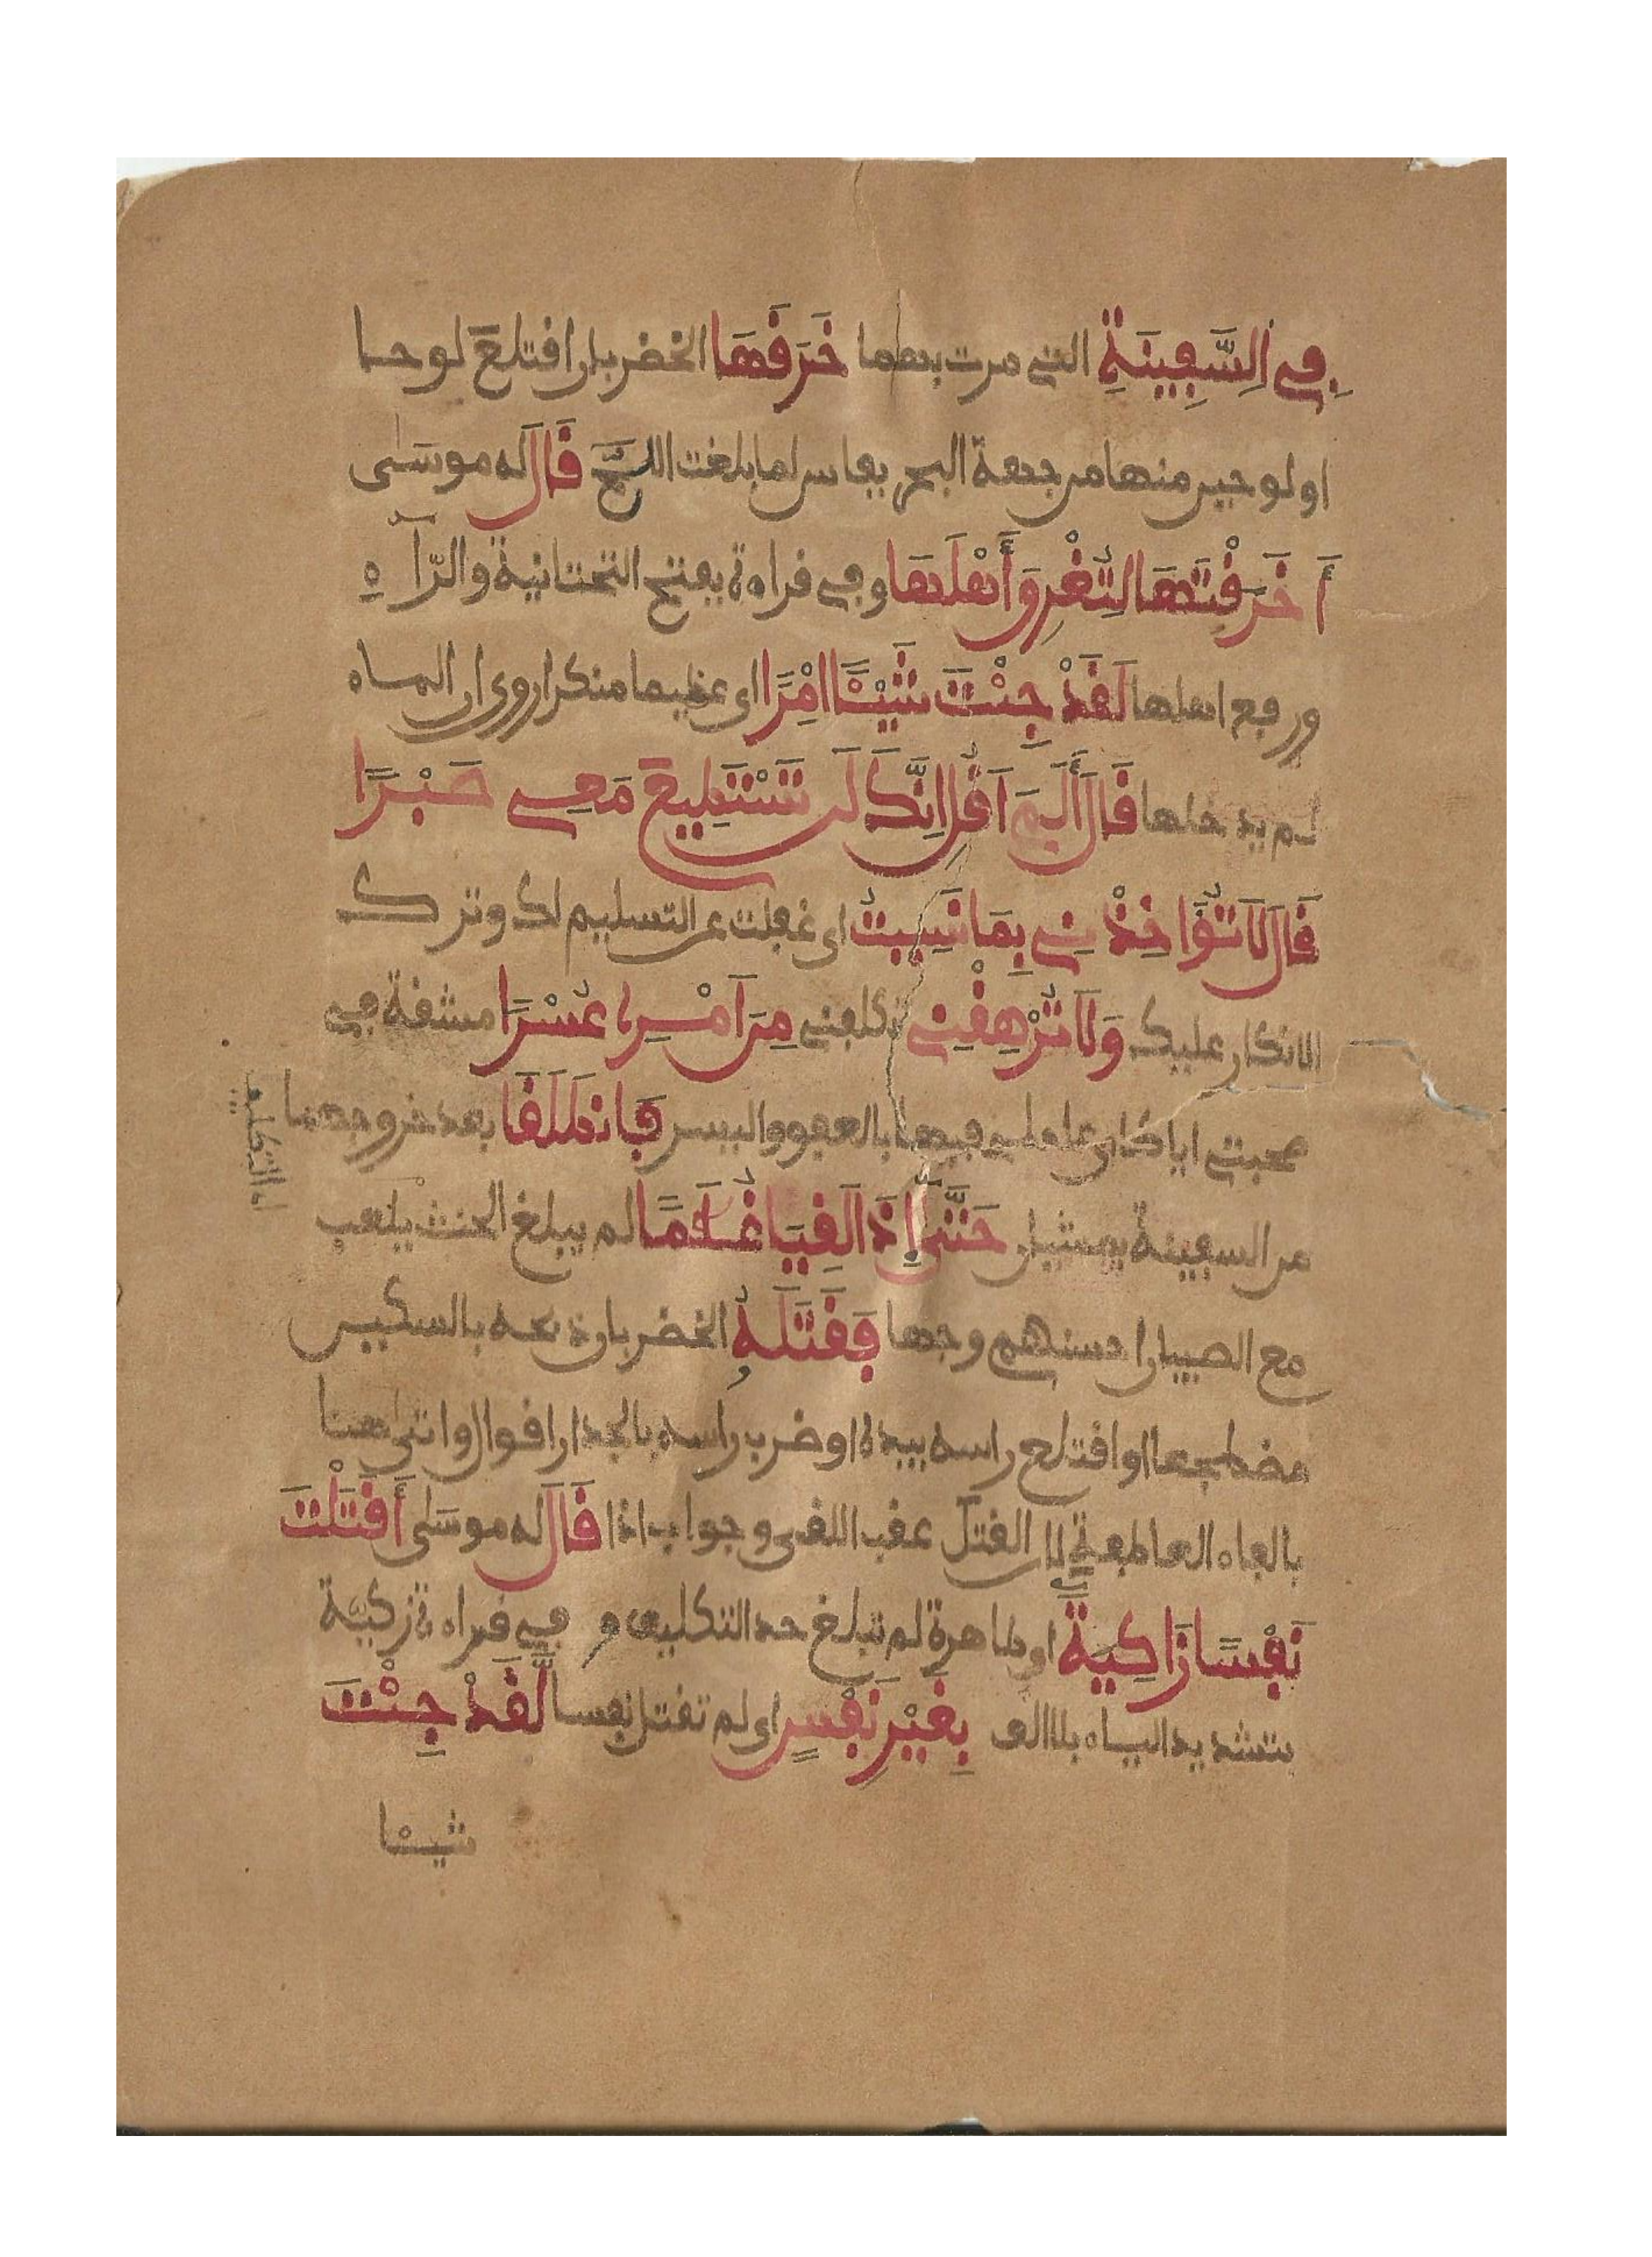 فِے اِ۬لسَّفِينَةِ التي مرت بهما خَرَقَهَا الخضر بان اقتلع لوحا
او لوحين منها من جهة البحر بفاس لما بلغت اللجج قَالَ له موسَىٰ
أَخَرَقْتَهَا لِتُغْرِقَ أَهْلَهَا وفي قراءة بفتح التحتانية والرّآء
ورفع اهلها لَقَدْ جِئْتَ شَيْـًٔا اِمْرًا اي عظيما منكرا روي ان الماء
لم يدخلها قَالَ أَلَمَ اَقُلِ اِنَّكَ لَن تَسْتَطِيعَ مَعِے صَبْرًا
قَالَ لَا تُوَ۬اخِذْنِے بِمَا نَسِيتُ اي غفلت عن التسليم لك وترك
الانكار عليك وَلَا تُرْهِقْنِے تكلفني مِنَ اَمْرِے عُسْرًا مشقة في
صحبتي اياك اي عاملني فيها بالعفو واليسر فَانطَلَقَا بعد خروجهما
من السفينة يمشيان حَتَّىٰ إِذَا لَقِيَا غُلَٰمًا لم يبلغ الحنث يلعب
مع الصبيان احسنهم وجها فَقَتَلَهُۥ الخضر بان ذبحه بالسكين
مضطجعا او اقتلع راسه بيده او ضرب راسه بالجدار اقوال واتى هنا
بالفاء العاطفة لان القتل عقب اللقى وجواب اذا قَالَ له موسَىٰ أَقَتَلْتَ
نَفْسًا زَاكِيَةَۢ اي طاهرة لم تبلغ حد التكليف و في قراءة زكيّة
بتشديد الياء بلا الف بِغَيْرِ نَفْسٍ اي لم تقتل نفسا لَّقَدْ جِئْتَ
شيـٔا